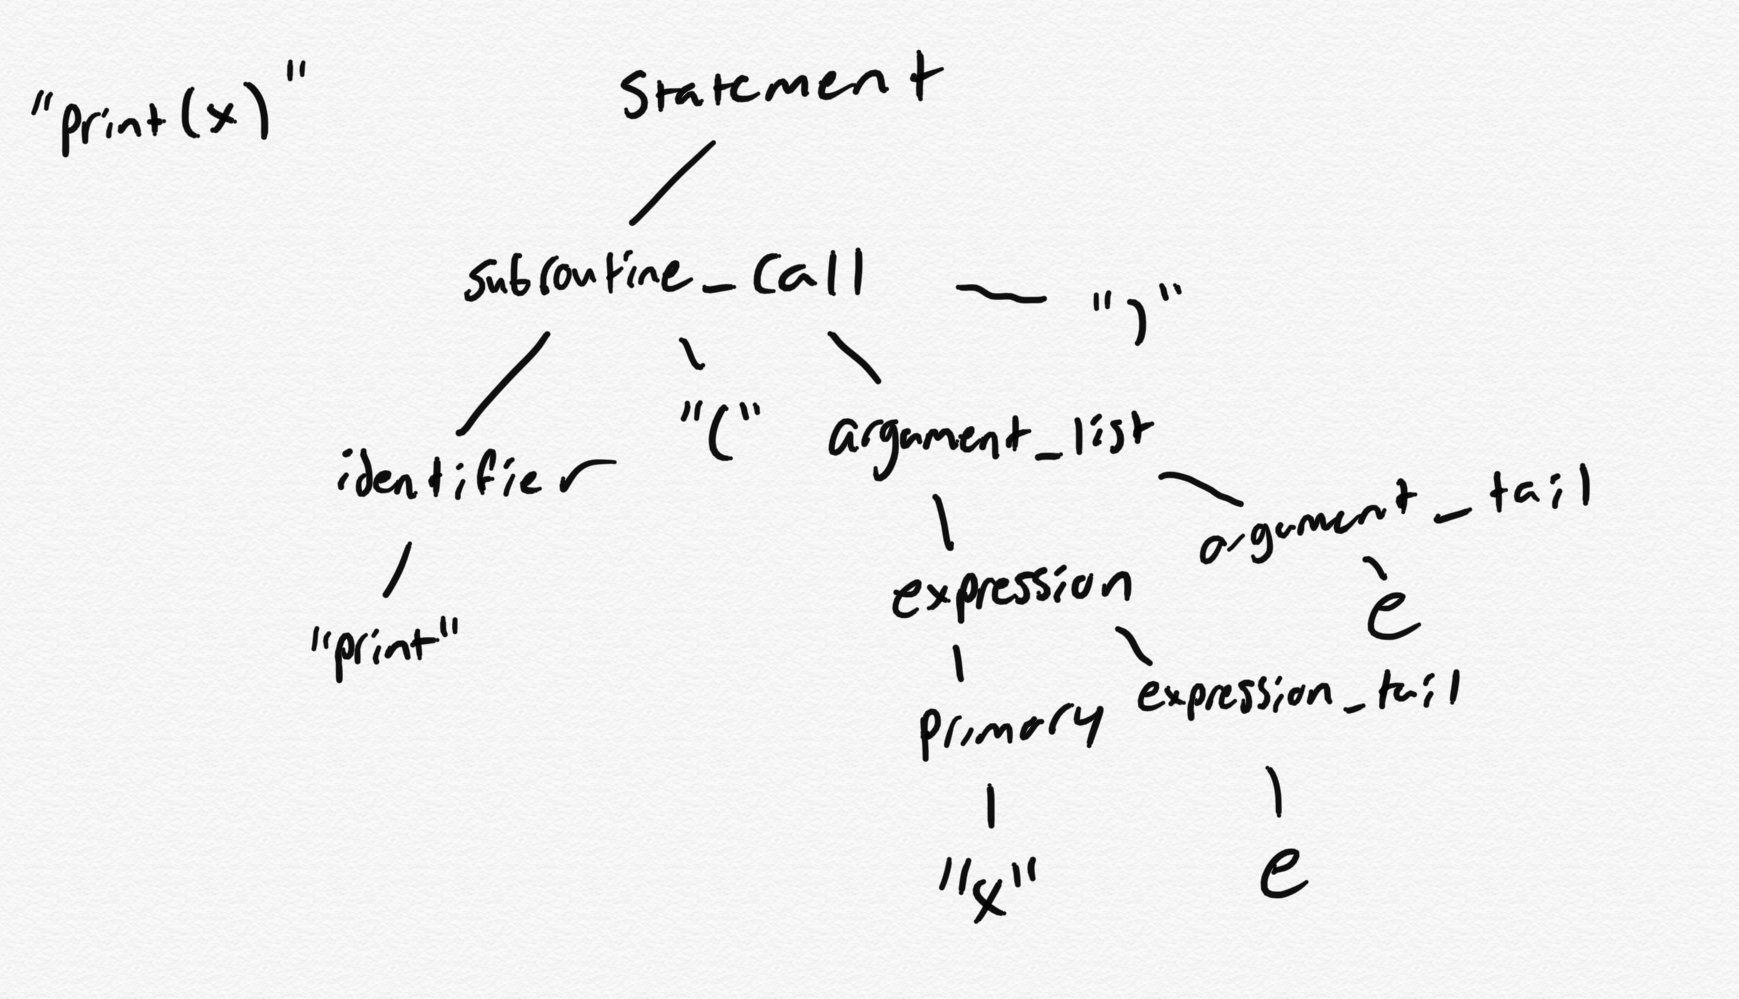 "print(x)"
statement
subroutine_call
")"
identifier
"("
argument_list
argument_tail
"print"
expression
e
primary
expression_tail
"x"
e